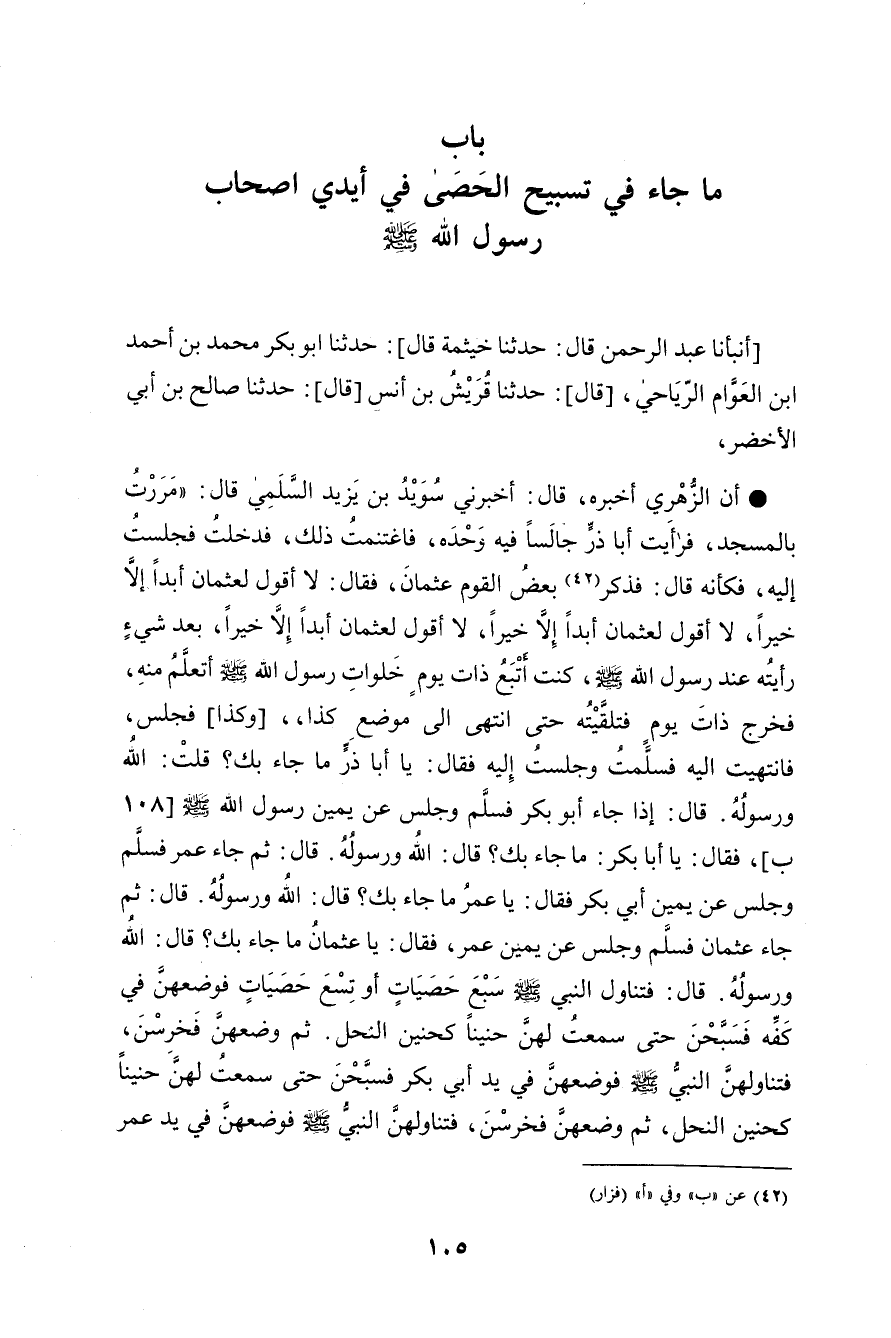 باب
ما جاء في تسبيح الحَصَىٰ في أيدي اصحاب
رسول الله ﷺ
[أنبأنا عبد الرحمن قال: حدثنا خيثمة قال]: حدثنا ابو بكر محمد بن أحمد
ابن العَوَّام الرِّيَاحيٰ، [قال]: حدثنا قُرَيْشُ بن أنس [قال]: حدثنا صالح بن أبي
الأخضر،
● أن الزُّهْري أخبره، قال: أخبرني سُوَيْدُ بن يَزيد السَّلَميٰ قال: «مَرَرْتُ
بالمسجد، فرأيت أبا ذرٍّ جالَساً فيه وَحْدَه، فاغتنمتُ ذلك، فدخلتُ فجلستُ
إليه، فكأنه قال: فذكر(٤٢) بعضُ القوم عثمانَ، فقال: لا أقول لعثمان أبداً إلَّا
خيراً، لا أقول لعثمان أبداً إلَّا خيراً، لا أقول لعثمان أبداً إلَّا خيراً، بعد شيءٍ
رأيتُه عند رسول الله ﷺ، كنت أَتْبَعُ ذات يومٍ خَلواتِ رسول الله ﷺ أتعلَّمُ منهِ،
فخرج ذاتَ يومٍ فتلقَّيْتُه حتى انتهى الى موضعِ كذا،، [وكذا] فجلس،
فانتهيت اليه فسلَّمتُ وجلستُ إليه فقال: يا أبا ذرٍّ ما جاء بك؟ قلتْ: اللهُ
ورسولُهُ. قال: إذا جاء أبو بكر فسلَّم وجلس عن يمين رسول الله ﷺ [١٠٨
ب]، فقال: يا أبا بكر: ما جاء بك؟ قال: اللهُ ورسولُهُ. قال: ثم جاء عمر فسلَّم
وجلس عن يمين أبي بكر فقال: يا عمرُ ما جاء بك؟ قال: اللهُ ورسولُهُ. قال: ثم
جاء عثمان فسلَّم وجلس عن يمين عمر، فقال: يا عثمانُ ما جاء بك؟ قال: اللهُ
ورسولُهُ. قال: فتناول النبي ﷺ سَبْعَ حَصَيَاتٍ أو تِسْعَ حَصَيَاتٍ فوضعهنَّ في
كَفِّه فَسَبَّحْنَ حتى سمعتُ لهنَّ حنيناً كحنين النحل. ثم وضعهنَّ فَخرِسْنَ،
فتناولهنَّ النبيُّ ﷺ فوضعهنَّ في يد أبي بكر فسبَّحْنَ حتى سمعتُ لهنَّ حنيناً
كحنين النحل، ثم وضعهنَّ فخرسْنَ، فتناولهنَّ النبيُّ ﷺ فوضعهنَّ في يد عمر
(٤٢) عن «ب» وفي «أ» (فزار)
١٠٥